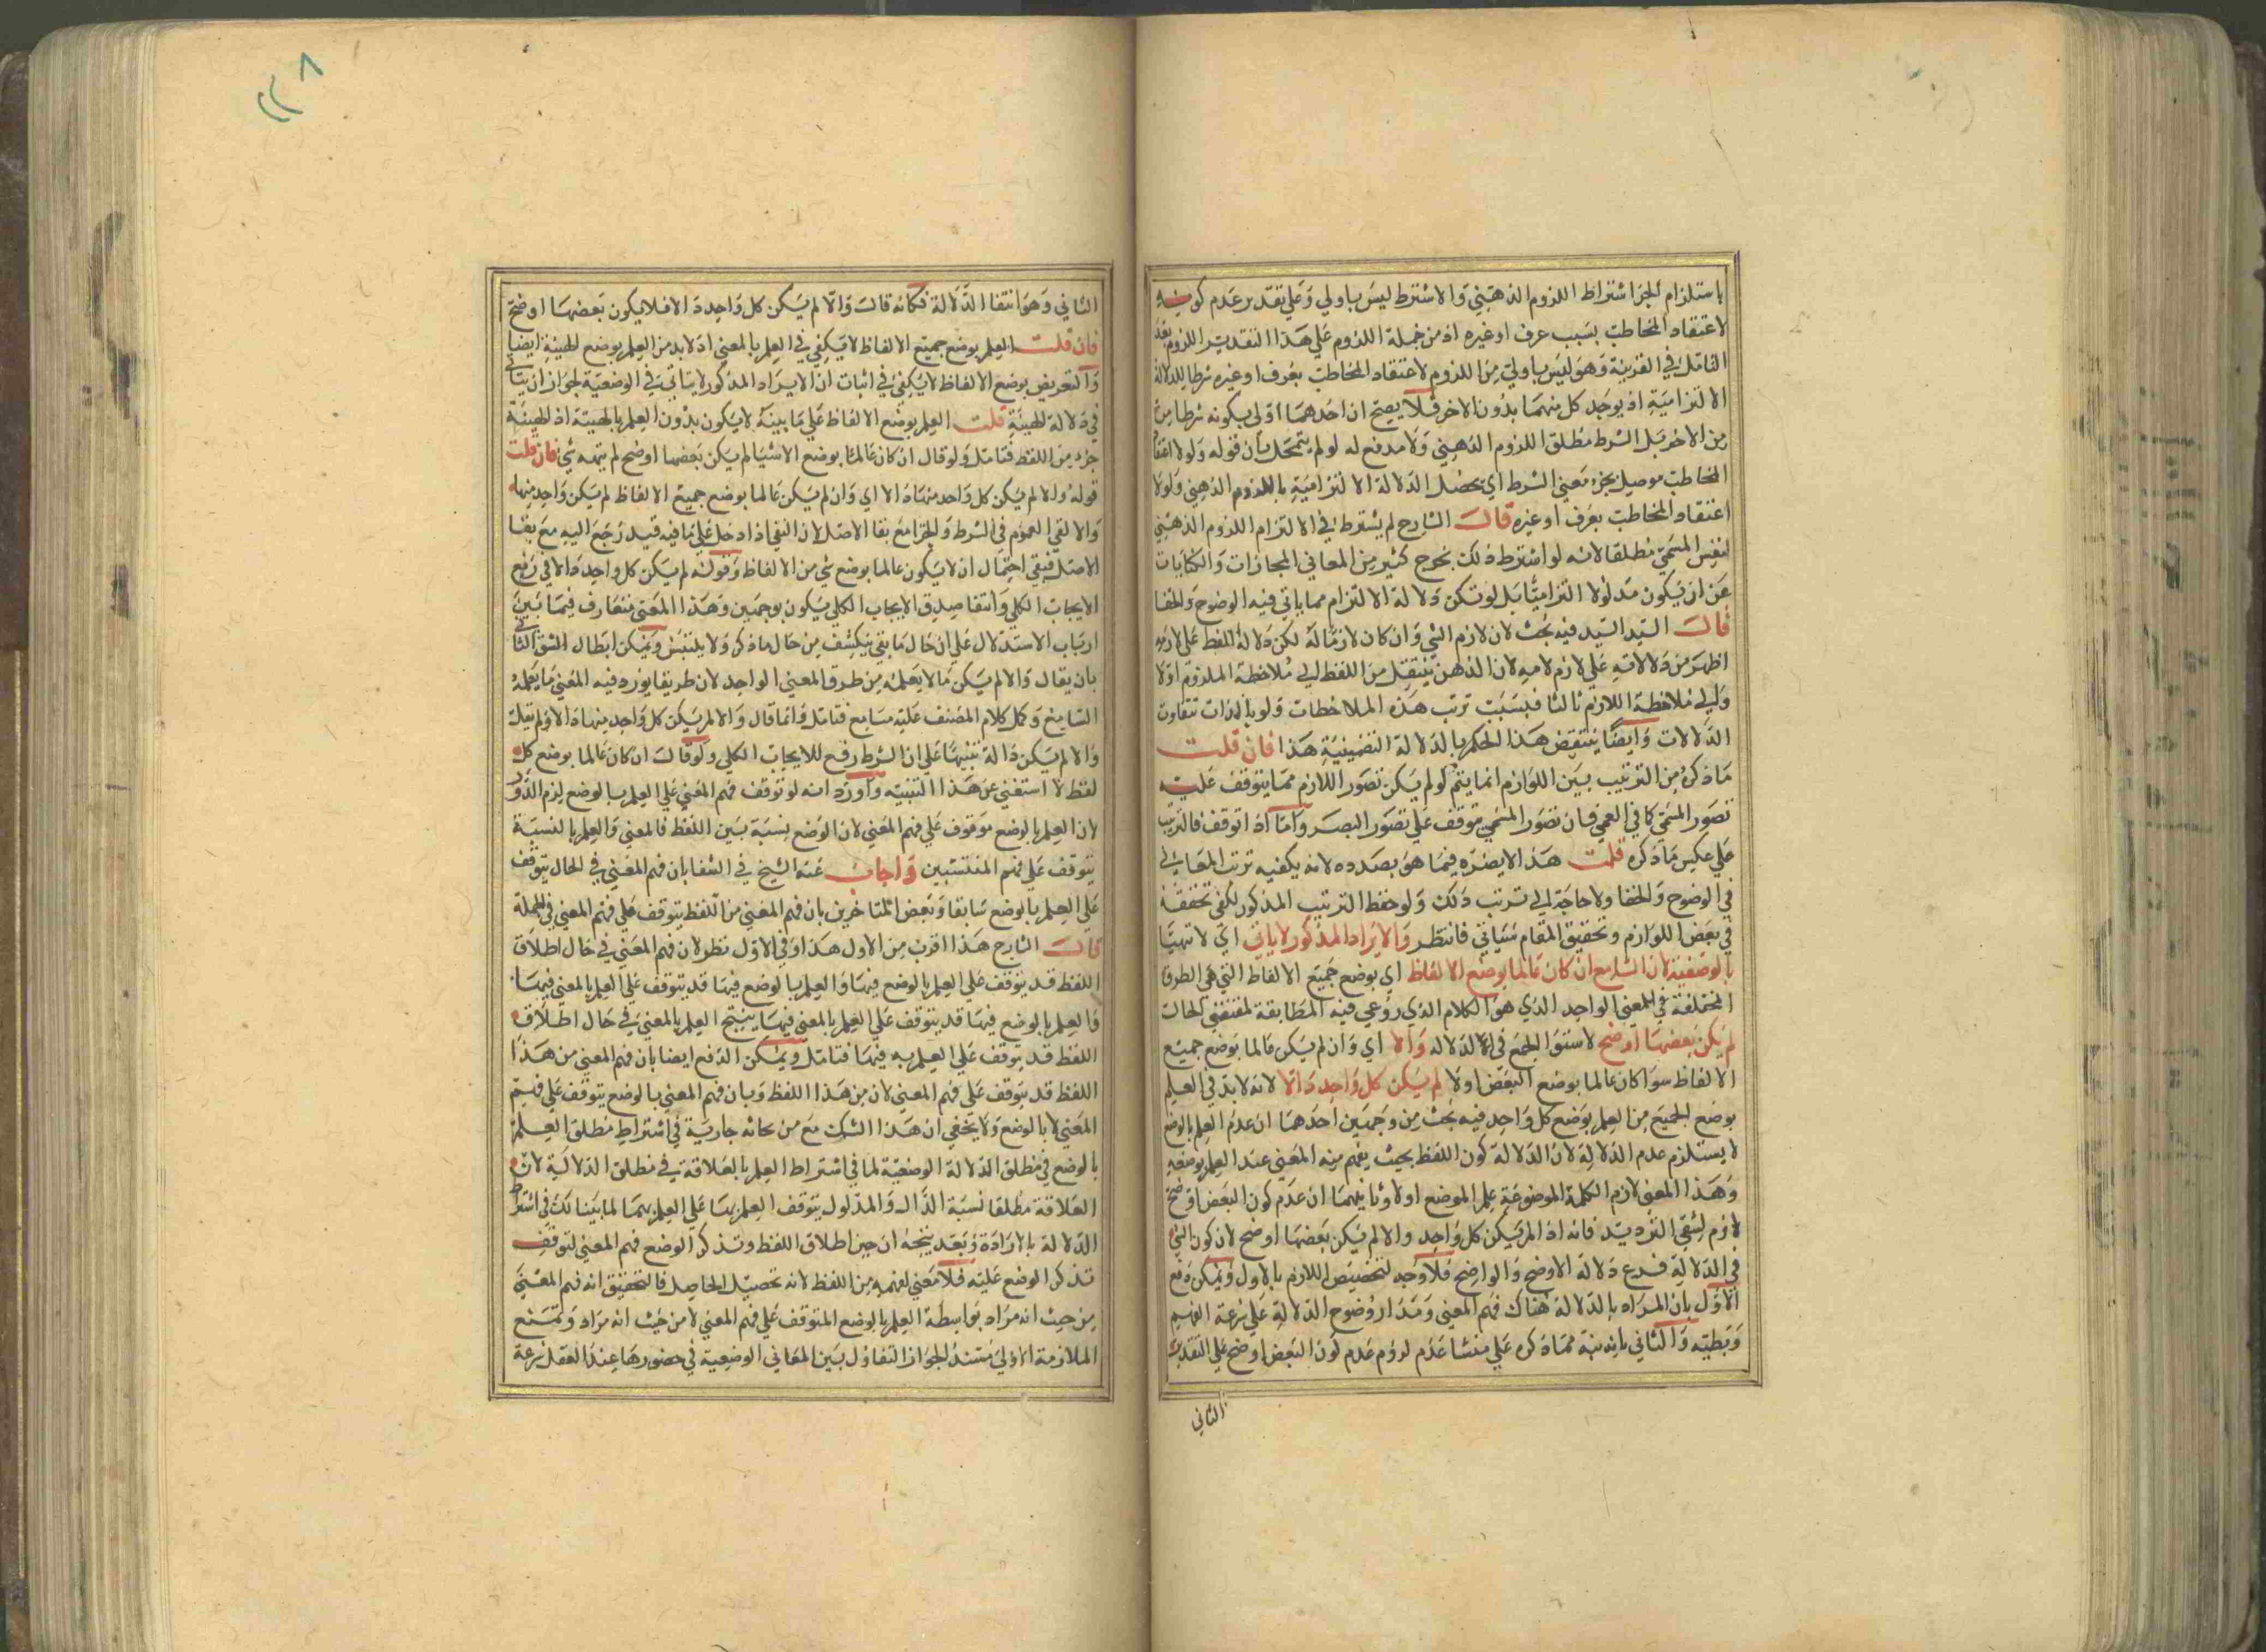 باستلزام الجزا اشتراط اللزوم الذهني والاشترط ليس باولي وعلي تقدير عدم كونه
لاعتقاد المخاطب بسبب عرف او غيره اذ من جملة اللزوم علي هذا التقدير اللزوم بعد
التامل في القرينة وهو ليس باولي من اللزوم لاعتقاد المخاطب بعرف او غيره شرطا للدلالة
الالتزامية اذ يوجد كل منهما بدون الاخر فلا يصح ان احدهما اولي بكونه شرطا من
من الاخر بل الشرط مطلق اللزوم الذهني ولا مدفع له لو لم يتمحل بان قوله ولولا اعتقاد
المخاطب موصيل بجزء معني الشرط اي تحصل الدلالة الالتزامية باللزوم الذهني ولولا
اعتقاد المخاطب بعرف او غيره قال الشارح لم يشترط في الالتزام اللزوم الذهني
لنفس المسمي مطلقا لانه لو اشترط ذلك لخرج كثير من المعاني المجازات والكنايات
عن ان يكون مدلولا التزاميا بل لو تكن دلالة الالتزام مما ياتي فيه الوضوح والخفا
قال السيد السيد فيه بحث لان لازم الشي وان كان لازما له لكن دلالة اللفظ علي لازمه
اظهر من دلالاته علي لازم لامه لان الذهن ينتقل من اللفظ الي ملاحظة الملزوم اولا
والي ملاحظة اللازم ثالثا فبسبب ترتب هذه الملاحظات ولو بالذات تتفاوت
الدلالات وايضا ينتقض هذا الحكم بالدلالة التضمينية هذا فان قلت
ما ذكره من الترتيب بين اللوازم انما يتم لو لم يكن تصور اللازم مما يتوقف عليه
تصور المسمي كما في العمي فان تصور المسمي يتوقف علي تصور البصر واما اذا توقف فالترتيب
علي عكس ما ذكره قلت هذا لا يضره فيما هو بصدده لانه يكفيه ترتب المعاني
في الوضوح والخفا ولا حاجة الي ترتب ذلك ولو حفظ الترتيب المذكور لكفي تحققه
في بعض اللوازم وتحقيق المقام سياتي فانتظر والايراد المذكور لا ياتي اي لا تهيا
بالوضعية لان السامع ان كان عالما بوضع الالفاظ اي بوضع جميع الالفاظ التي هي الطرق
المختلفة في المعني الواحد الذي هو الكلام الذي روعي فيه المطابقة لمقتضي الحال
لم يكن بعضها اوضح لاستوا الجمع في الدلاله والا اي وان لم يكن عالما بوضع جميع
الالفاظ سوا كان عالما بوضع البعض اولا لم يكن كل واحد دالا لانه لا بد في العلم
بوضع الجميع من العلم بوضع كل واحد فيه بحث من وجهين احدهما ان عدم العلم بالوضع
لا يستلزم عدم الدلالة لان الدلالة كون اللفظ بحيث يفهم منه المعني عند العلم بوضعه
وهذا المعني لازم الكلمة الموضوعة علم الموضع اولا وثانيهما ان عدم كون البعض اوضح
لازم لشقي الترديد فانه اذا لم يكن كل واحد والا لم يكن بعضها اوضح لان كون الشي
في الدلالة فرع دلالة الاوضح والواضح فلا وجه لتخصيص اللازم بالاول ويمكن دفع
الاول بان المراد بالدلالة هناك فهم المعني ومدار وضوح الدلالة علي سرعة الفهم
وبطئه والثاني بانه نبه مما ذكره علي منشا عدم لزوم عدم كون البعض اوضح علي التقدير
الثاني
الثاني وهو انتفا الدلالة فكانه قال والا لم يكن كل واحد دالا فلا يكون بعضها اوضح
فان قلت العلم بوضع جميع الالفاظ لا يكفي في العلم بالمعني اذ لا بد من العلم بوضع الهيئة ايضا
والتعريض بوضع الالفاظ لا يكفي في اثبات ان الايراد المذكور لا يتاتي في الوضعية لجواز ان يتاتي
في دلالة الهيئة قلت العلم بوضع الالفاظ علي ما بينه لا يكون بدون العلم بالهيئة اذ الهيئة
جزء من اللفظ فتامل ولو قال ان كان عالما بوضع الاشيا لم يكن بعضها اوضح لم يتجه شي فان قلت
قوله والا لم يكن كل واحد منها دالا اي وان لم يكن عالما بوضع جميع الالفاظ لم يكن واحد منها
والا لقي العموم في الشرط والجزا مع بقا الاصل لان النفي اذا دخل علي ما فيه قيد رجع اليه مع بقا
الاصل فبقي احتمال ان لا يكون عالما بوضع شي من الالفاظ وقوله لم يكن كل واحد دالا في رفع
الايجاب الكلي وانتفا صدق الايجاب الكلي يكون بوجهين وهذا المعني متعارف فيما بين
ارباب الاستدلال علي ان حال ما بقي ينكشف من حال ما ذكر ولا يلتبس ويمكن ابطال الشق الثاني
بان يقال والا لم يكن ما لا يعلمه من طرق المعني الواحد لان طريقا يورد فيه المعني ما يعلمه
السامع وكل كلام المصنف عليه مسامح فتامل وانما قال والا لم يكن كل واحد منها دالا ولم يقل
والا لم يكن دالة تنبيها علي ان الشرط رفع للايجاب الكلي ولو قال ان كان عالما بوضع كل
لفظ لاستغني عن هذا التنبيه واورد انه لو توقف فهم المعني علي العلم بالوضع لزم الدور
لان العلم بالوضع موقوف علي فهم المعني لان الوضع نسبة بين اللفظ فالمعني والعلم بالنسبة
يتوقف علي فهم المنتسبين واجاب عنه الشيخ في الشفا بان فهم المعني في الحال يتوقف
علي العلم بالوضع سابقا وبعض المتاخرين بان فهم المعني من اللفظ يتوقف علي فهم المعني في الجملة
قال الشارح هذا اقرب من الاول هذا وفي الاول نظر لان فهم المعني في حال اطلاق
اللفظ قد يتوقف علي العلم بالوضع فيها والعلم بالوضع فيها قد يتوقف علي العلم بالمعني فيها
والعلم بالوضع فيها قد يتوقف علي العلم بالمعني فيها ينتج العلم بالمعني في حال اطلاق
اللفظ قد يتوقف علي العلم به فيها فتامل ويمكن الدفع ايضا بان فهم المعني من هذا
اللفظ قد يتوقف علي فهم المعني لان من هذا اللفظ وبان فهم المعني بالوضع يتوقف علي فهم
المعني لا بالوضع ولا يخفي ان هذا الشك مع جاريه في اشتراط مطلق العلم
بالوضع في مطلق الدلالة الوضعية لما في اشتراط العلم بالعلاقة في مطلق الدلالة لان
العلاقة مطلقا نسبة الدال والمدلول يتوقف العلم بها علي العلم بهما لما بينا لك في اشتراط
الدلالة بالارادة وبعد يتجه ان حين اطلاق اللفظ وتذكر الوضع فهم المعني لتوقف
تذكر الوضع عليه فلا معني لفهمه من اللفظ لانه تحصيل الحاصل فالتحقيق انه فهم المعني
من حيث انه مراد بواسطة العلم بالوضع المتوقف علي فهم المعني لا من حيث انه مراد وتمنع
الملازمة الاولي مستند الجواز التفاوت بين المعاني الوضعية في حضورها عند العقل سرعة